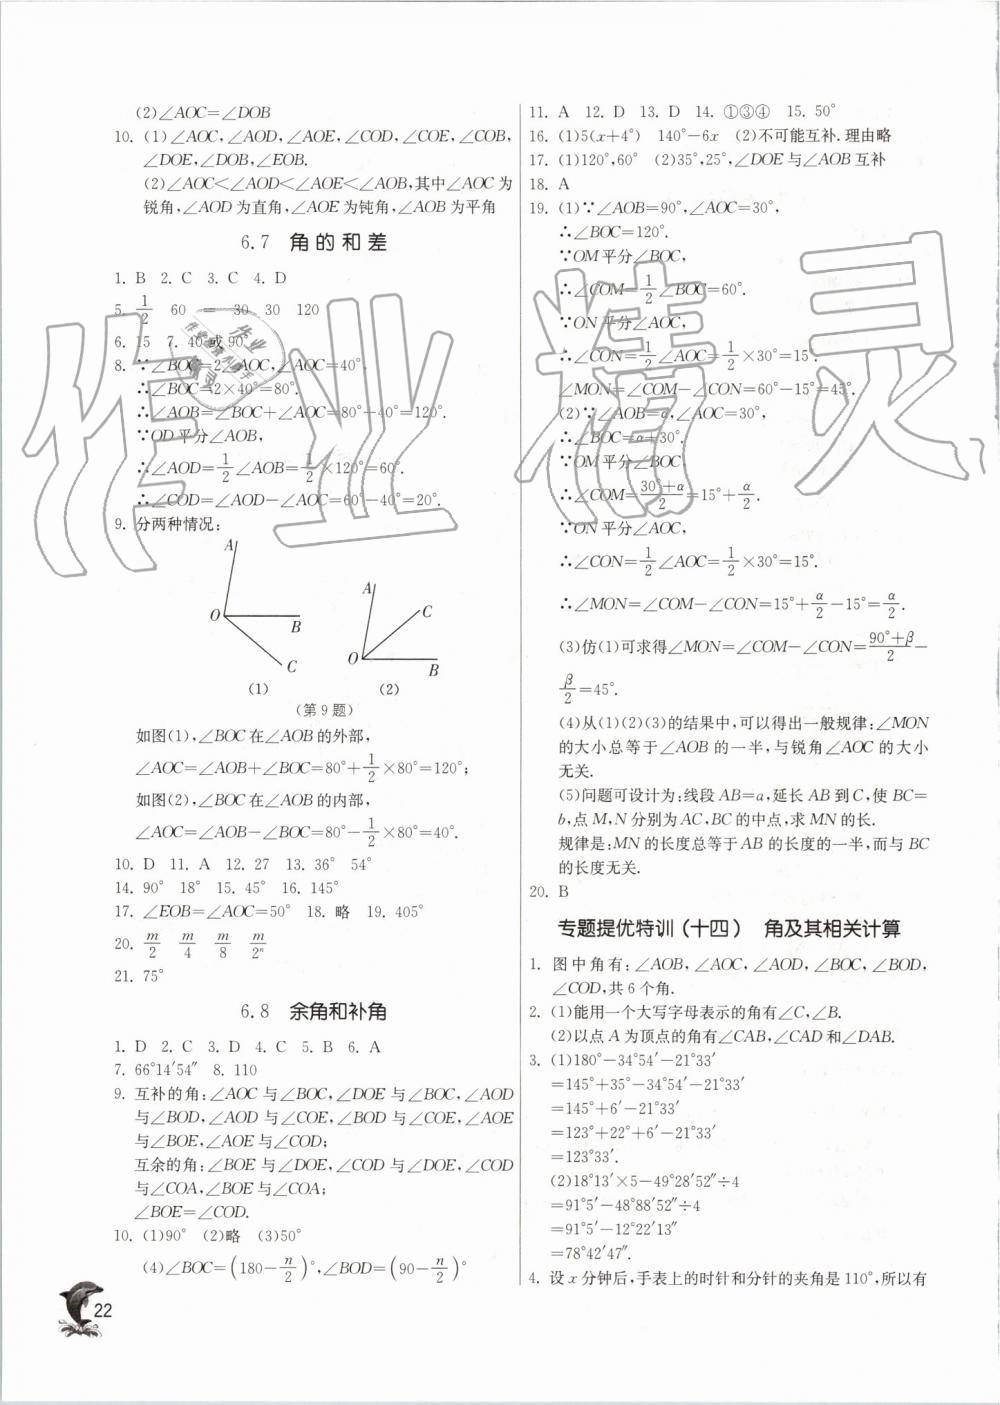 (2)∠AOC=∠DOB
10. (1)∠AOC,∠AOD,∠AOE,∠COD,∠COE,∠COB,
∠DOE,∠DOB,∠EOB.
(2)∠AOC<∠AOD<∠AOE<∠AOB,其中∠AOC为
锐角,∠AOD为直角,∠AOE为钝角,∠AOB为平角
6.7 角的和差
1. B 2. C 3. C 4. D
5. 1/2 60 = 30 30 120
6. 15 7. 40°或90°
8. ∵∠BOC=2∠AOC,∠AOC=40°
∴∠BOC=2×40°=80°.
∴∠AOB=∠BOC+∠AOC=80°+40°=120°.
∵OD平分∠AOB,
∴∠AOD=1/2∠AOB=1/2×120°=60°.
∴∠COD=∠AOD-∠AOC=60°-40°=20°.
9. 分两种情况:
A
O
B
C
(1)
A
C
O
B
(2)
(第9题)
如图(1),∠BOC在∠AOB的外部,
∠AOC=∠AOB+∠BOC=80°+1/2×80°=120°;
如图(2),∠BOC在∠AOB的内部,
∠AOC=∠AOB-∠BOC=80°-1/2×80°=40°.
10. D 11. A 12. 27 13. 36° 54°
14. 90° 18° 15. 45° 16. 145°
17. ∠EOB=∠AOC=50° 18. 略 19. 405°
20. m/2 m/4 m/8 m/2ⁿ
21. 75°
6.8 余角和补角
1. D 2. C 3. D 4. C 5. B 6. A
7. 66°14′54″ 8. 110
9. 互补的角:∠AOC与∠BOC,∠DOE与∠BOC,∠AOD
与∠BOD,∠AOD与∠COE,∠BOD与∠COE,∠AOE
与∠BOE,∠AOE与∠COD;
互余的角:∠BOE与∠DOE,∠COD与∠DOE,∠COD
与∠COA,∠BOE与∠COA;
∠BOE=∠COD.
10. (1)90° (2)略 (3)50°
(4)∠BOC=(180-n/2)°,∠BOD=(90-n/2)°
22
11. A 12. D 13. D 14. ①③④ 15. 50°
16. (1)5(x+4°) 140°-6x (2)不可能互补.理由略
17. (1)120°,60° (2)35°,25°,∠DOE与∠AOB互补
18. A
19. (1)∵∠AOB=90°,∠AOC=30°,
∴∠BOC=120°.
∵OM平分∠BOC,
∴∠COM=1/2∠BOC=60°.
∵ON平分∠AOC,
∴∠CON=1/2∠AOC=1/2×30°=15°.
∠MON=∠COM-∠CON=60°-15°=45°.
(2)∵∠AOB=α,∠AOC=30°,
∴∠BOC=α+30°.
∵OM平分∠BOC
∴∠COM=30°+α/2=15°+α/2.
∵ON平分∠AOC,
∴∠CON=1/2∠AOC=1/2×30°=15°.
∴∠MON=∠COM-∠CON=15°+α/2-15°=α/2.
(3)仿(1)可求得∠MON=∠COM-∠CON=90°+β/2-
β/2=45°.
(4)从(1)(2)(3)的结果中,可以得出一般规律:∠MON
的大小总等于∠AOB的一半,与锐角∠AOC的大小
无关.
(5)问题可设计为:线段AB=a,延长AB到C,使BC=
b,点M,N分别为AC,BC的中点,求MN的长.
规律是:MN的长度总等于AB的长度的一半,而与BC
的长度无关.
20. B
专题提优特训(十四) 角及其相关计算
1. 图中角有:∠AOB,∠AOC,∠AOD,∠BOC,∠BOD,
∠COD,共6个角.
2. (1)能用一个大写字母表示的角有∠C,∠B.
(2)以点A为顶点的角有∠CAB,∠CAD和∠DAB.
3. (1)180°-34°54′-21°33′
=145°+35°-34°54′-21°33′
=145°+6′-21°33′
=123°+22°+6′-21°33′
=123°33′.
(2)18°13′×5-49°28′52″÷4
=91°5′-48°88′52″÷4
=91°5′-12°22′13″
=78°42′47″.
4. 设x分钟后,手表上的时针和分针的夹角是110°,所以有
作业精灵